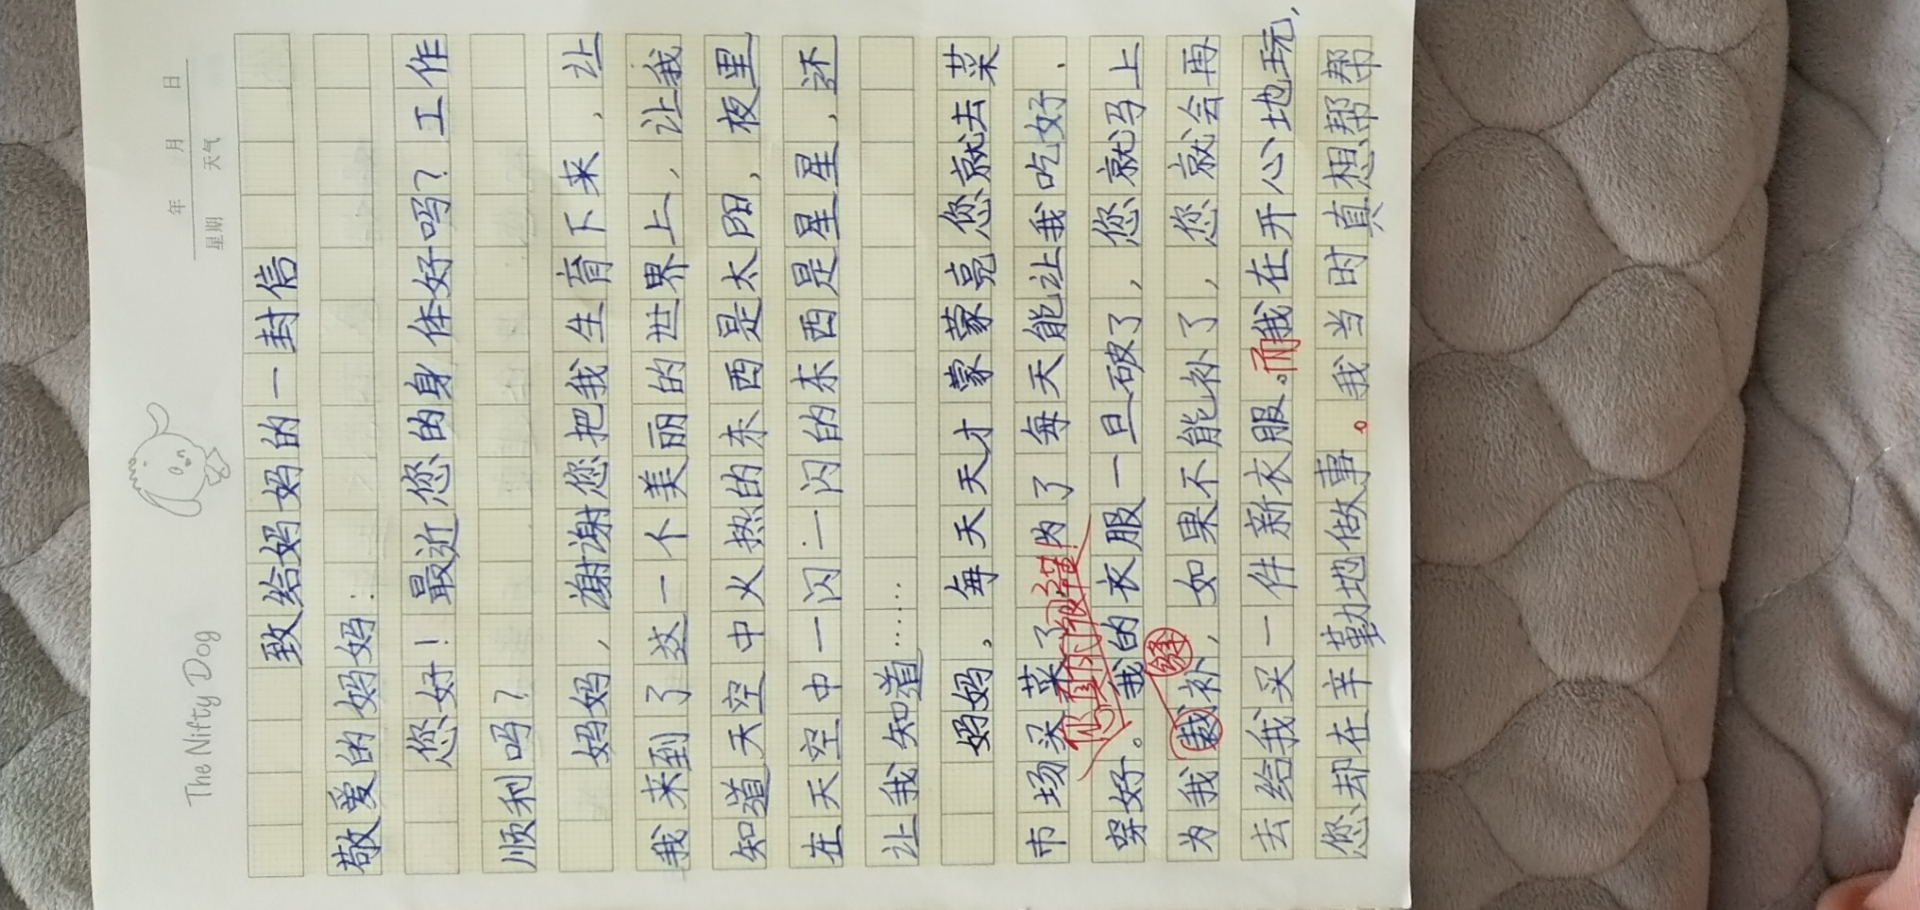 The Nifty Dog
年 月 日
星期 天气
致给妈妈的一封信
敬爱的妈妈：
您好！最近您的身体好吗？工作
顺利吗？
妈妈，谢谢您把我生育下来，让
我来到了这一个美丽的世界上，让我
知道天空中火热的东西是太阳，夜里
在天空中一闪一闪的东西是星星，还
让我知道……
妈妈。每天天才蒙蒙亮您就去菜
市场买菜了肉了每天能让我吃好．
穿好。我的衣服一旦破了，您就马上
为我裁补，如果不能补了，您就会再
缝
去给我买一件新衣服。而我在开心地玩，
您却在辛勤地做事。我当时真想帮帮